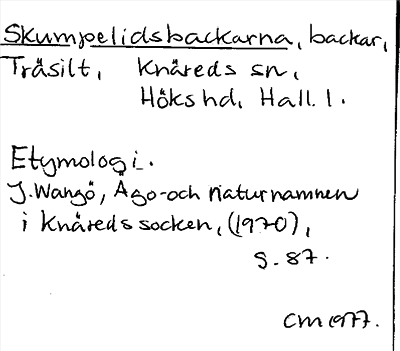 Skumpelidsbackarna, backar,
Träsilt, Knäreds sn,
Höks hd, Hall. l.
Etymologi.
J. Wangö, Ägo- och naturnamnen
i Knäreds socken, (1970),
s. 87.
CM 1977.